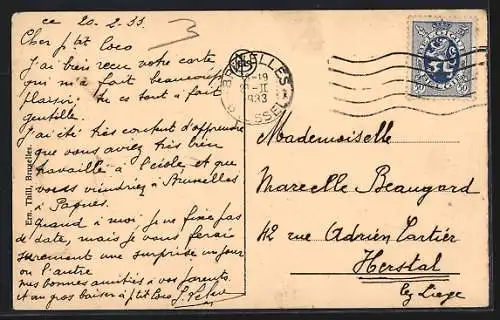 ce 20.2.33.
Cher p'tit Coco
J'ai bien reçu votre carte
qui m'a fait beaucoup
plaisir; tu es tout à fait
gentille.
J'ai été très content d'apprendre
que vous aviez très bien
travaillé à l'école et que
vous viendriez à Bruxelles
à Pâques.
Quand à moi je ne fixe pas
de date, mais je vous ferais
surement une surprise un jour
ou l'autre
mes bonnes amitiés à vos parents.
et un gros baiser à p'tit Coco
3
Ern. Thill, Bruxelles.
BRUXELLES
-19
-II
1933
BRUSSEL
BELGIQUE
50 50
Mademoiselle
Marcelle Beaugard
112 rue Adrien Tartier
Herstal
lez Liege